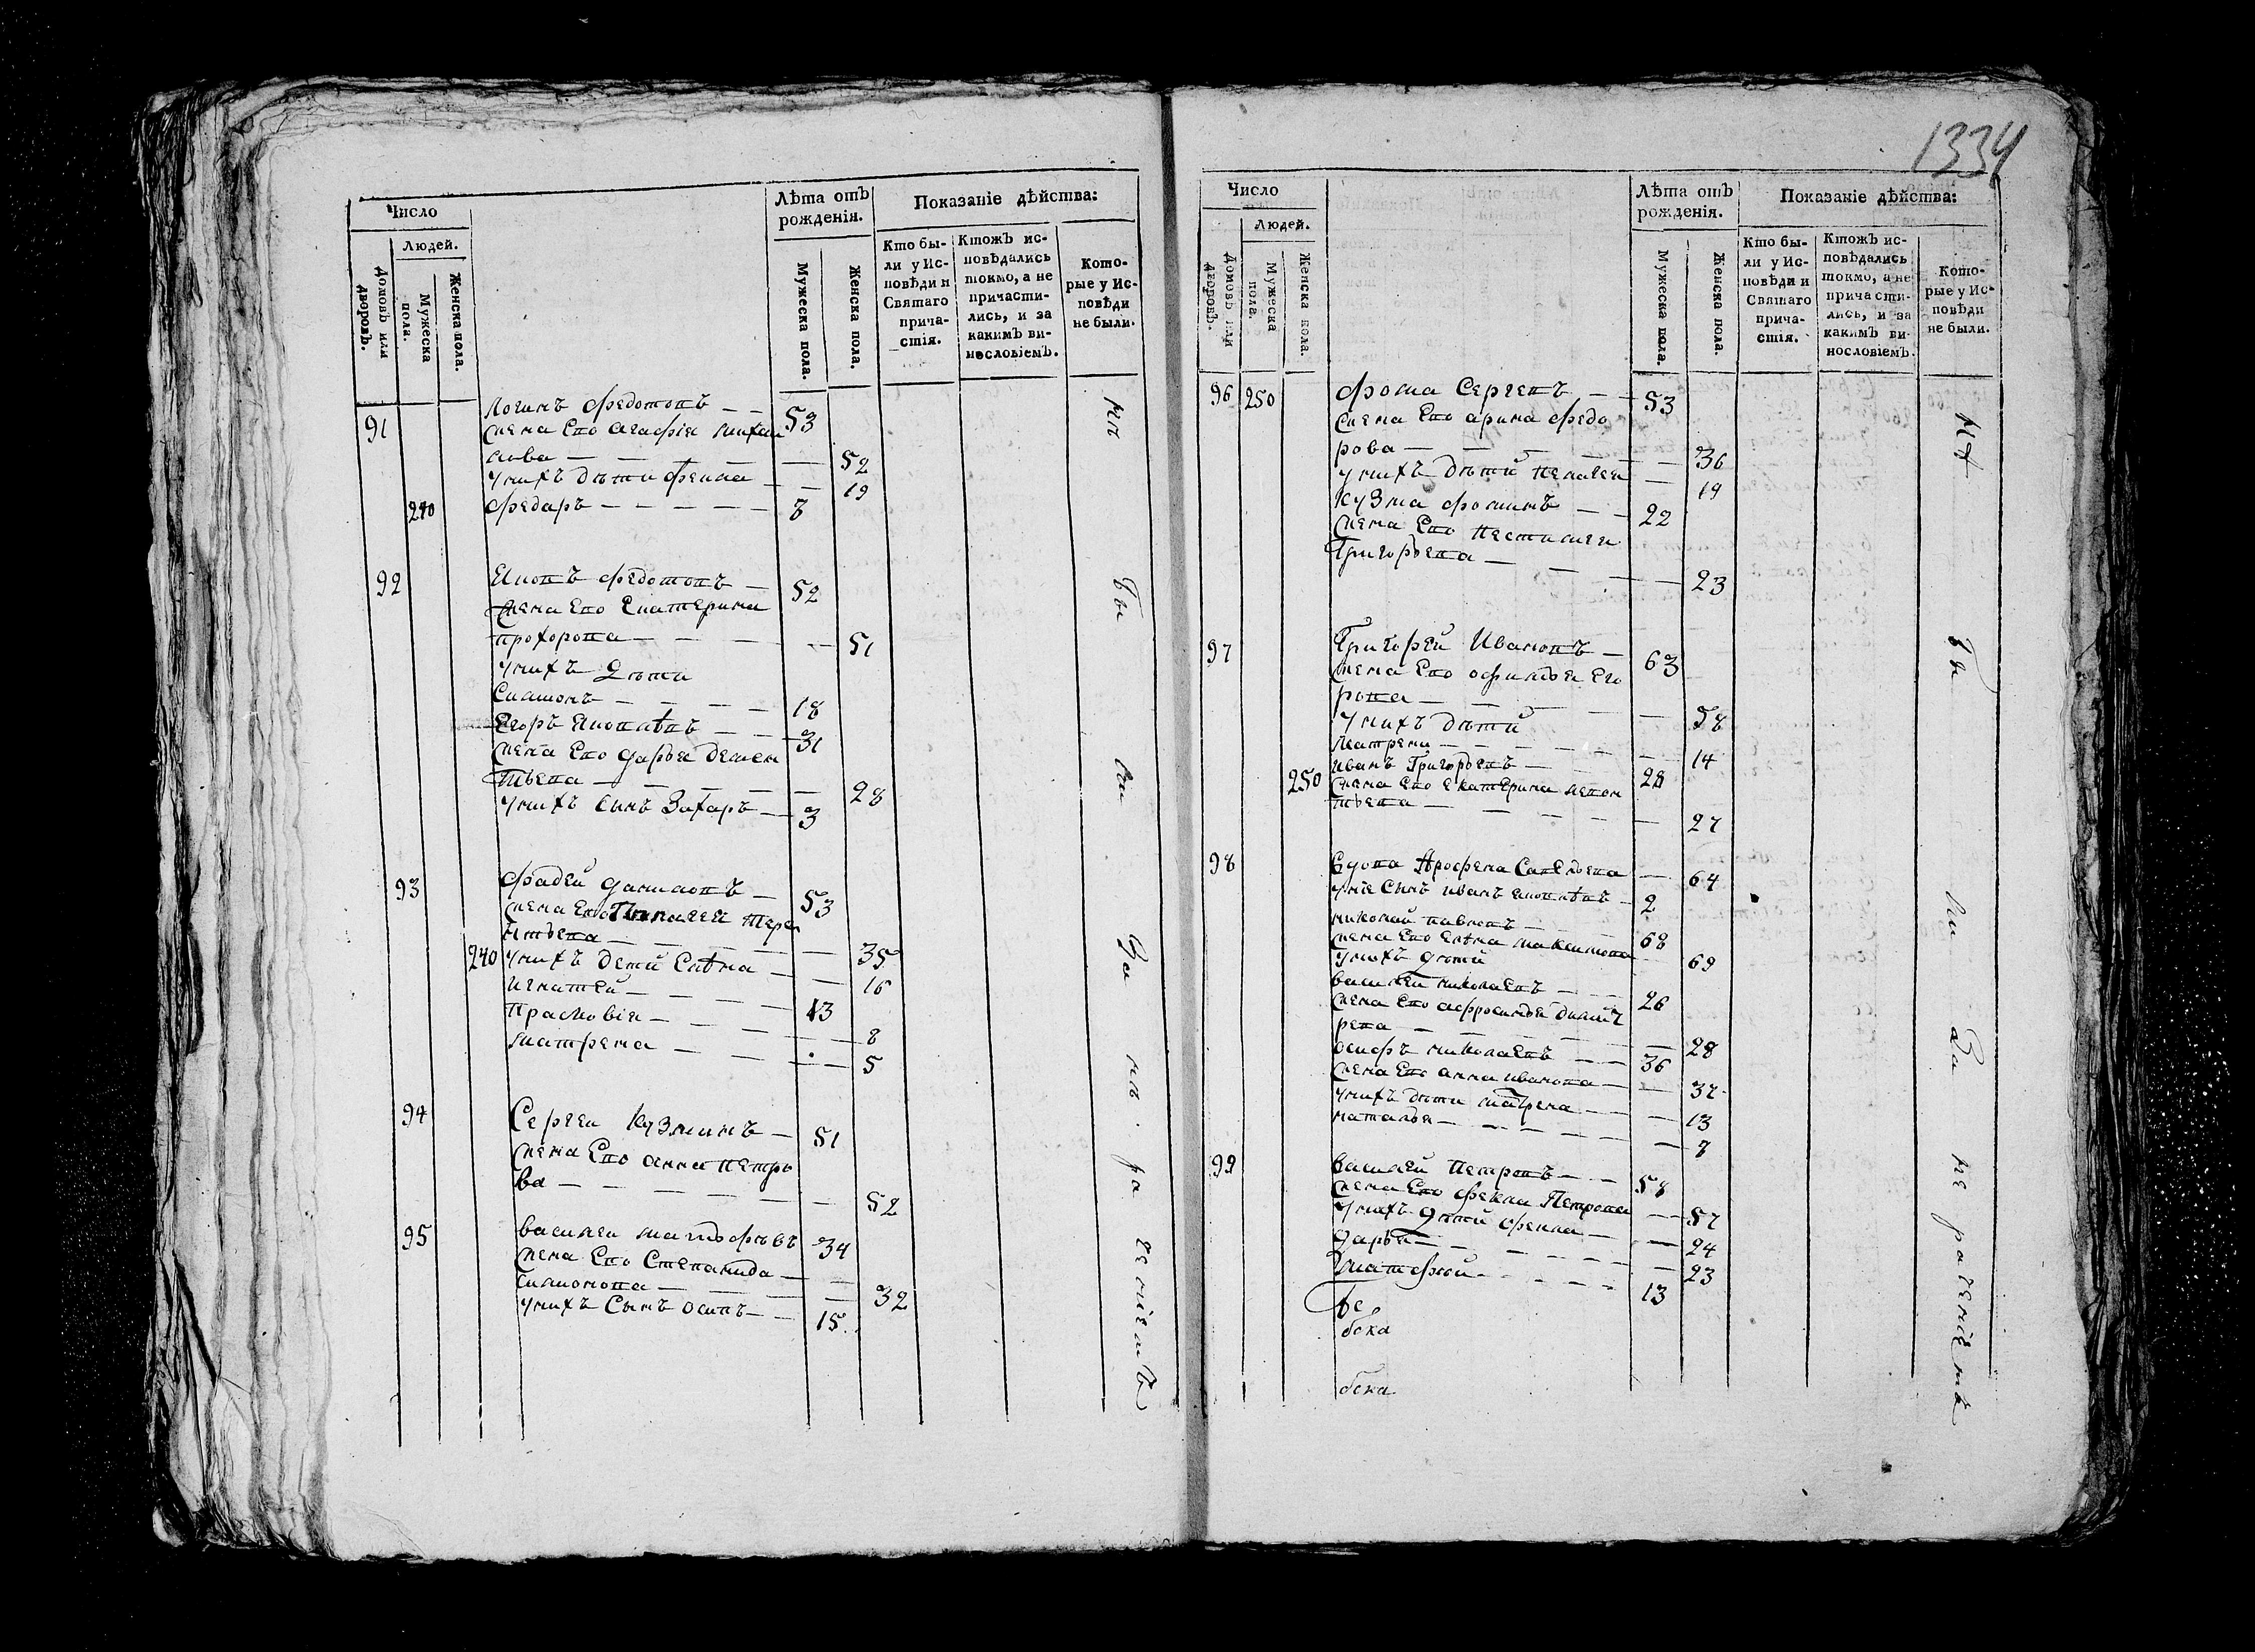 1334
Число
Лѣта отъ рожденія.
Показаніе дѣйства:
Людей.
Домовъ или дворовъ.
Мужеска пола.
Женска пола.
Мужеска пола.
Женска пола.
Кто бы-
ли у Ис-
повѣди и
Святаго
прича-
стія.
Ктожъ ис-
повѣдались
токмо, а не
причасти-
лись, и за
какимъ ви-
нословіемъ.
Кото-
рые у Ис-
повѣди
не были.
91 Логинъ Федотовъ 53
жена Его Агафія Михаи
лова 52
у нихъ дѣти Фекла 19
240 Федаръ 8
92 Федотовъ 52
жена Его Екатерина
Прохорова 51
у нихъ дѣти
Симионъ 18
Егоръ 31
жена Его Дарья Демен
тьева 28
у нихъ Сынъ Захаръ 3
93 Фадей Даниловъ 53
жена Его Пелагея Тере
нтьева 35
240 у нихъ дети Елѣна 16
Игнатей 13
Прасковія 8
Матрена 5
94 Сергеи Кузминъ 51
жена Его Анна Петро
ва 52
95 Василеи 34
жена Его Степанида
Симионова 32
у нихъ Сынъ Осипъ 15
не бы ли за не ра чениемъ
Число
Лѣта отъ рожденія.
Показаніе дѣйства:
Людей.
Домовъ или дворовъ.
Мужеска пола.
Женска пола.
Мужеска пола.
Женска пола.
Кто бы-
ли у Ис-
повѣди и
Святаго
прича-
стія.
Ктожъ ис-
повѣдались
токмо, а не
причасти-
лись, и за
какимъ ви-
нословіемъ.
Кото-
рые у Ис-
повѣди
не были.
96 250 Фома Сергевъ 53
жена Его Арина Федо
рова 36
у нихъ дѣтй Пелагеи 19
Кузма Фоминъ 22
жена Его Настасея
Григорьева 23
97 Григорей Ивановъ 63
жена Его Офимья Его
рова 58
у нихъ дѣтй
Матрена 14
Иванъ Григорьевъ 28
250 жена Его Екатерина Леон
тьева 27
98 Вдова Савельева 64
Сынъ Иванъ 2
Николай Павловъ 68
жена Его Елѣна Максимова 69
у нихъ дѣтй
Василей Николаевъ 26
жена Его Афросинья
28
Осифъ Николаевъ 36
жена Его Анна Иванова 37
у нихъ дѣти Матрена 13
Наталья
99 Василей Петровъ 58
жена Его Фекла Петрова 57
у нихъ дѣтй Фекла 24
Дарья 23
Матфей 13
не бы ли за не рачениемъ